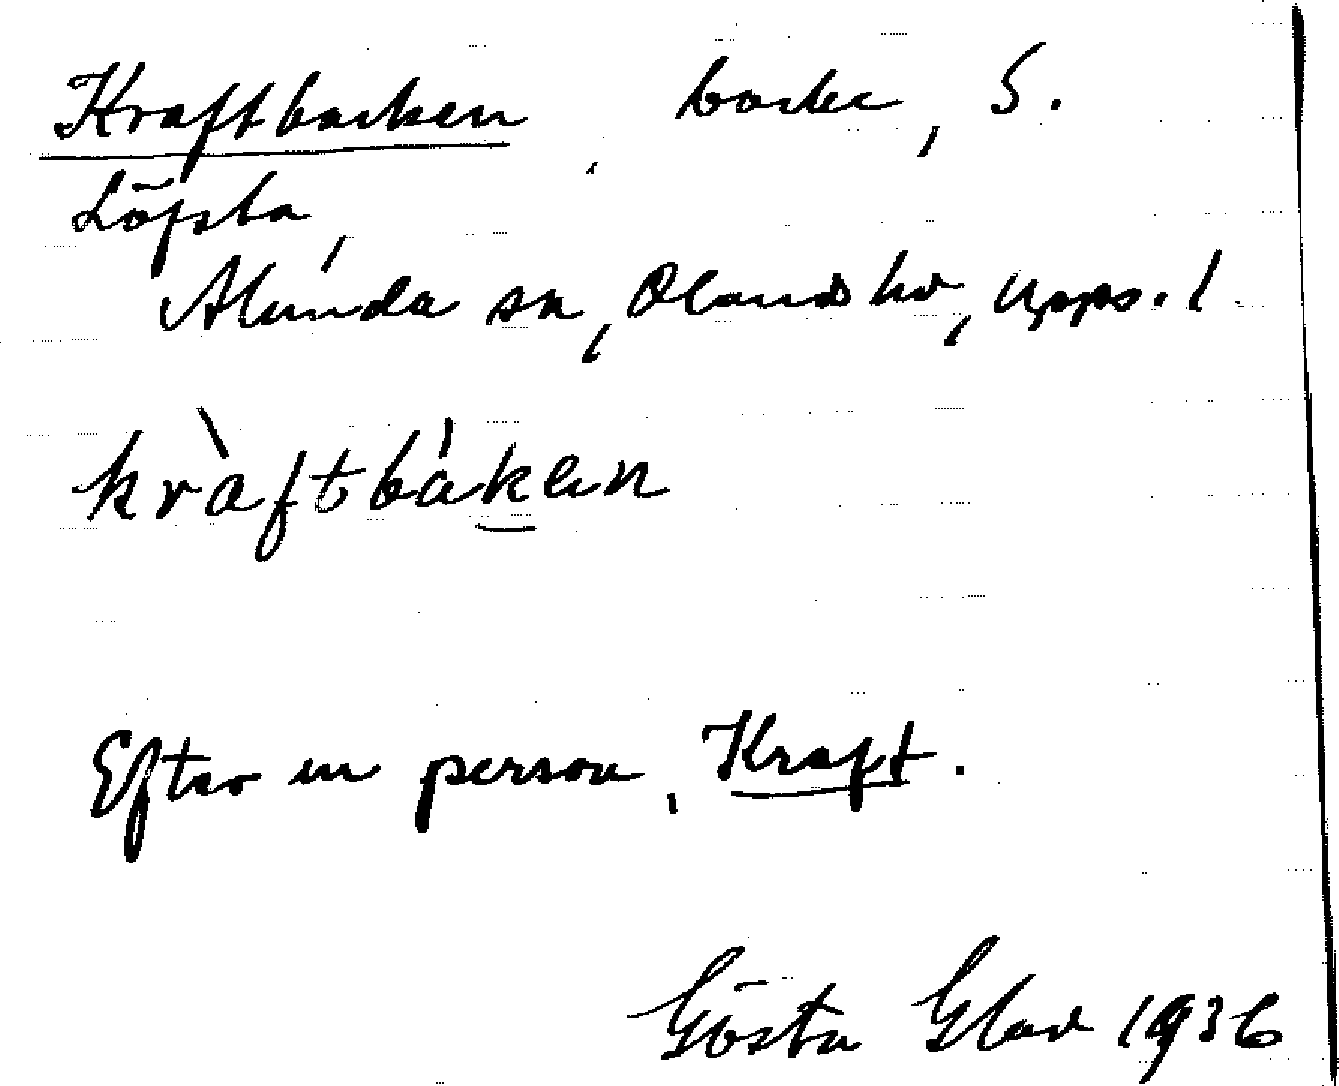 Kraftbacken, backe, S.
Löfsta,
Alunda sn, Olands hd, Upps. l
kràftbáken
Efter en person, Kraft.
Gösta Glad 1936